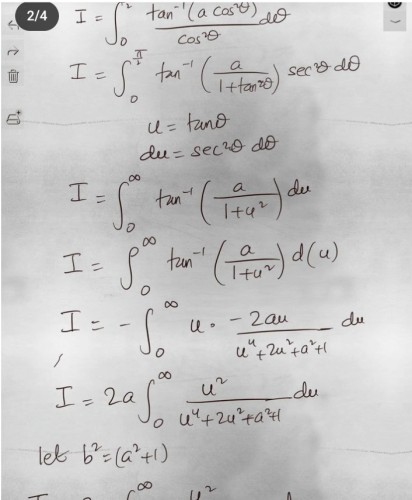 2/4
I = ∫₀ tan⁻¹(a cos²θ)/cos²θ dθ
I = ∫₀^(π/2) tan⁻¹(a/(1+tan²θ)) sec²θ dθ
u = tanθ
du = sec²θ dθ
I = ∫₀^∞ tan⁻¹(a/(1+u²)) du
I = ∫₀^∞ tan⁻¹(a/(1+u²)) d(u)
I = - ∫₀^∞ u · -2au/(u⁴+2u²+a²+1) du
I = 2a ∫₀^∞ u²/(u⁴+2u²+a²+1) du
let b² = (a²+1)